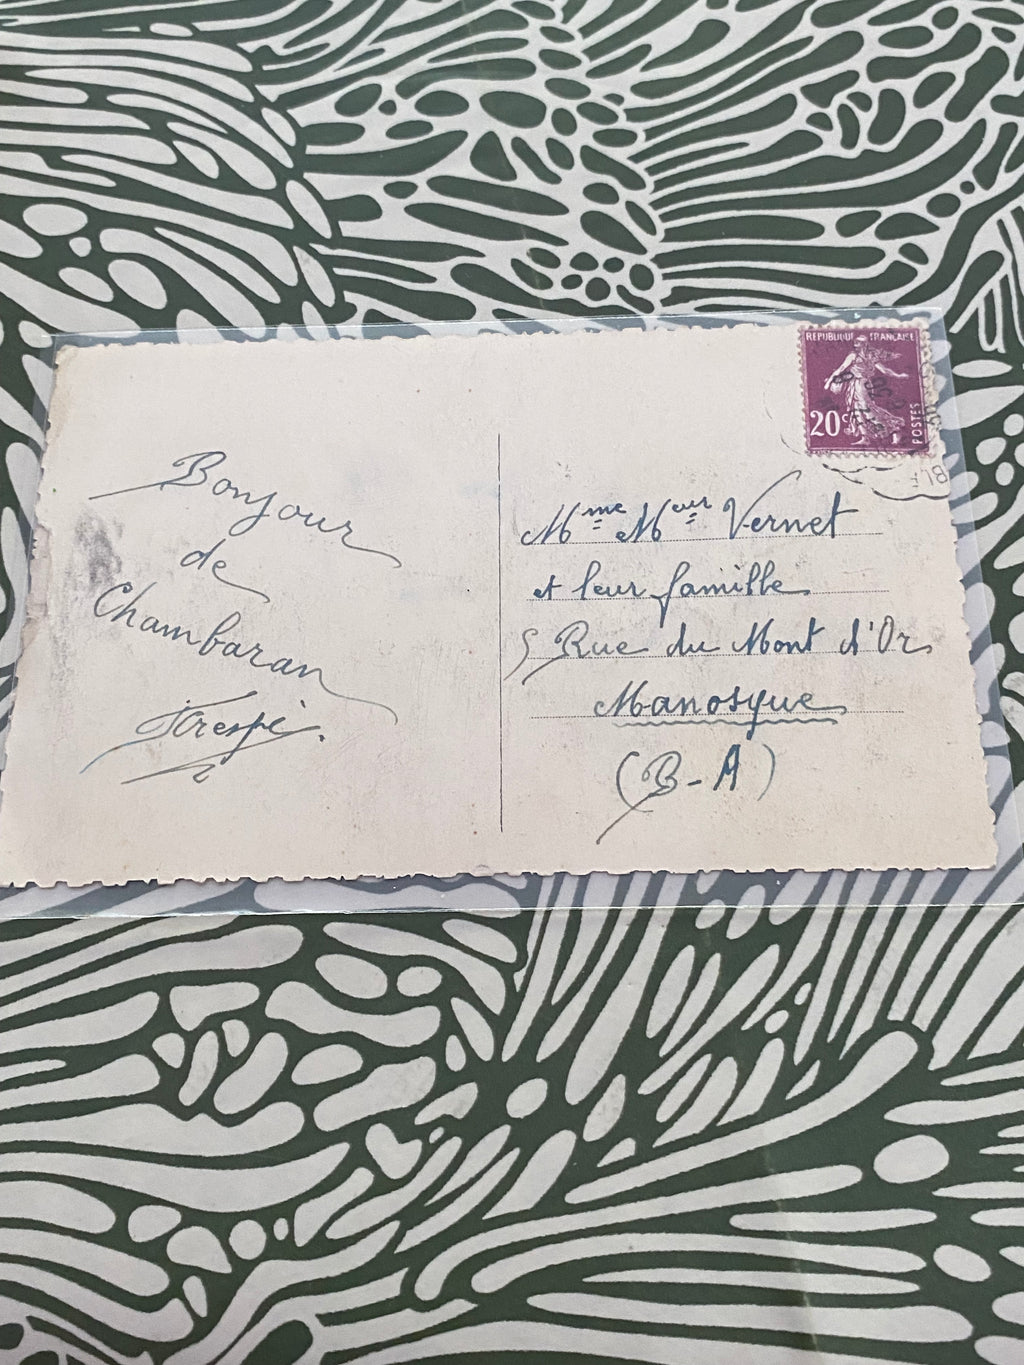 REPUBLIQUE FRANÇAISE
20c
POSTES
Bonjour
de
Chambaran
Mme Meur Vernet
et leur famille
5 Rue du Mont d'Or
Manosque
(B-A)